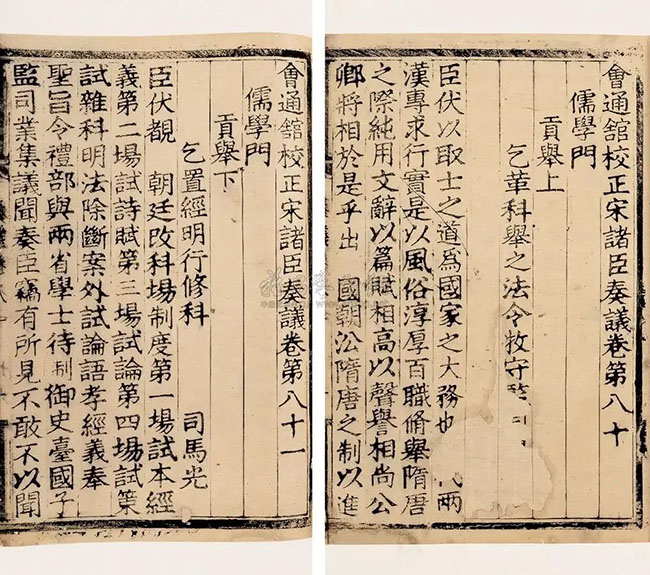 會通舘校正宋諸臣奏議卷第八十
儒學門
貢舉上
乞革科舉之法令牧守
臣伏以取士之道為國家之大務也 兩
漢專求行實是以風俗淳厚百職脩舉隋唐
之際純用文辭以篇賦相高以聲譽相尚公
卿將相於是乎出 國朝㳂隋唐之制以進
會通舘校正宋諸臣奏議卷第八十一
儒學門
貢舉下
乞置經明行修科 司馬光
臣伏覩 朝廷改科場制度第一場試本經
義第二場試詩賦第三場試論第四場試策
試雜科明法除斷案外試論語孝經義奉
聖旨令禮部與兩省學士待制御史臺國子
監司業集議聞奏臣竊有所見不敢不以聞